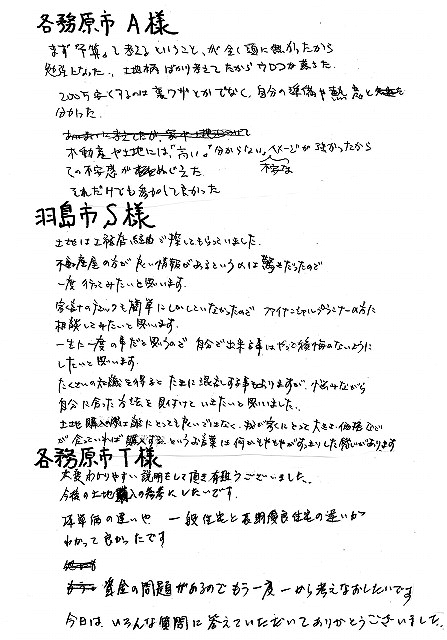 各務原市 A様
まず「予算」って考えるということが全く頭に無かったから
勉強になった。土地柄ばかり考えてたからウロコが落ちた
200万安くするのは裏ワザとかでなく、自分の準備や熱意と
分かった。
不動産や土地には、"高い。" 分からない。イメージが強かったから
不安な
その不安感がぬぐえた
それだけでも参加して良かった
羽島市S様
土地は工務店経由で探してもらっていました。
不動産屋の方が良い情報があるというのは驚きだったので
一度行ってみたいと思います。
家計のチェックも簡単にしかしていなかったので ファイナンシャルプランナーの方に
相談してみたいと思います。
一生に一度の事だと思うので 自分で出来る事はやって後悔のないように
したいと思います。
たくさんの知識を得ると たまに混乱する事もありますが、悩みながら
自分に合った方法を見付けていきたいと思いました。
土地購入際は誰にとっても良いではなく、我が家にとって大事な価格などが
合っていれば購入する というお言葉は何かもやもやがすっきりした様があります
各務原市T様
大変わかりやすい説明をして頂き有難うございました。
今後の土地購入の参考にしたいです。
坪単価の違いや 一般住宅と長期優良住宅の違いが
わかって良かったです
資金の問題があるのでもう一度一から考えなおしたいです
今日は、いろんな質問に答えていただいてありがとうございました。